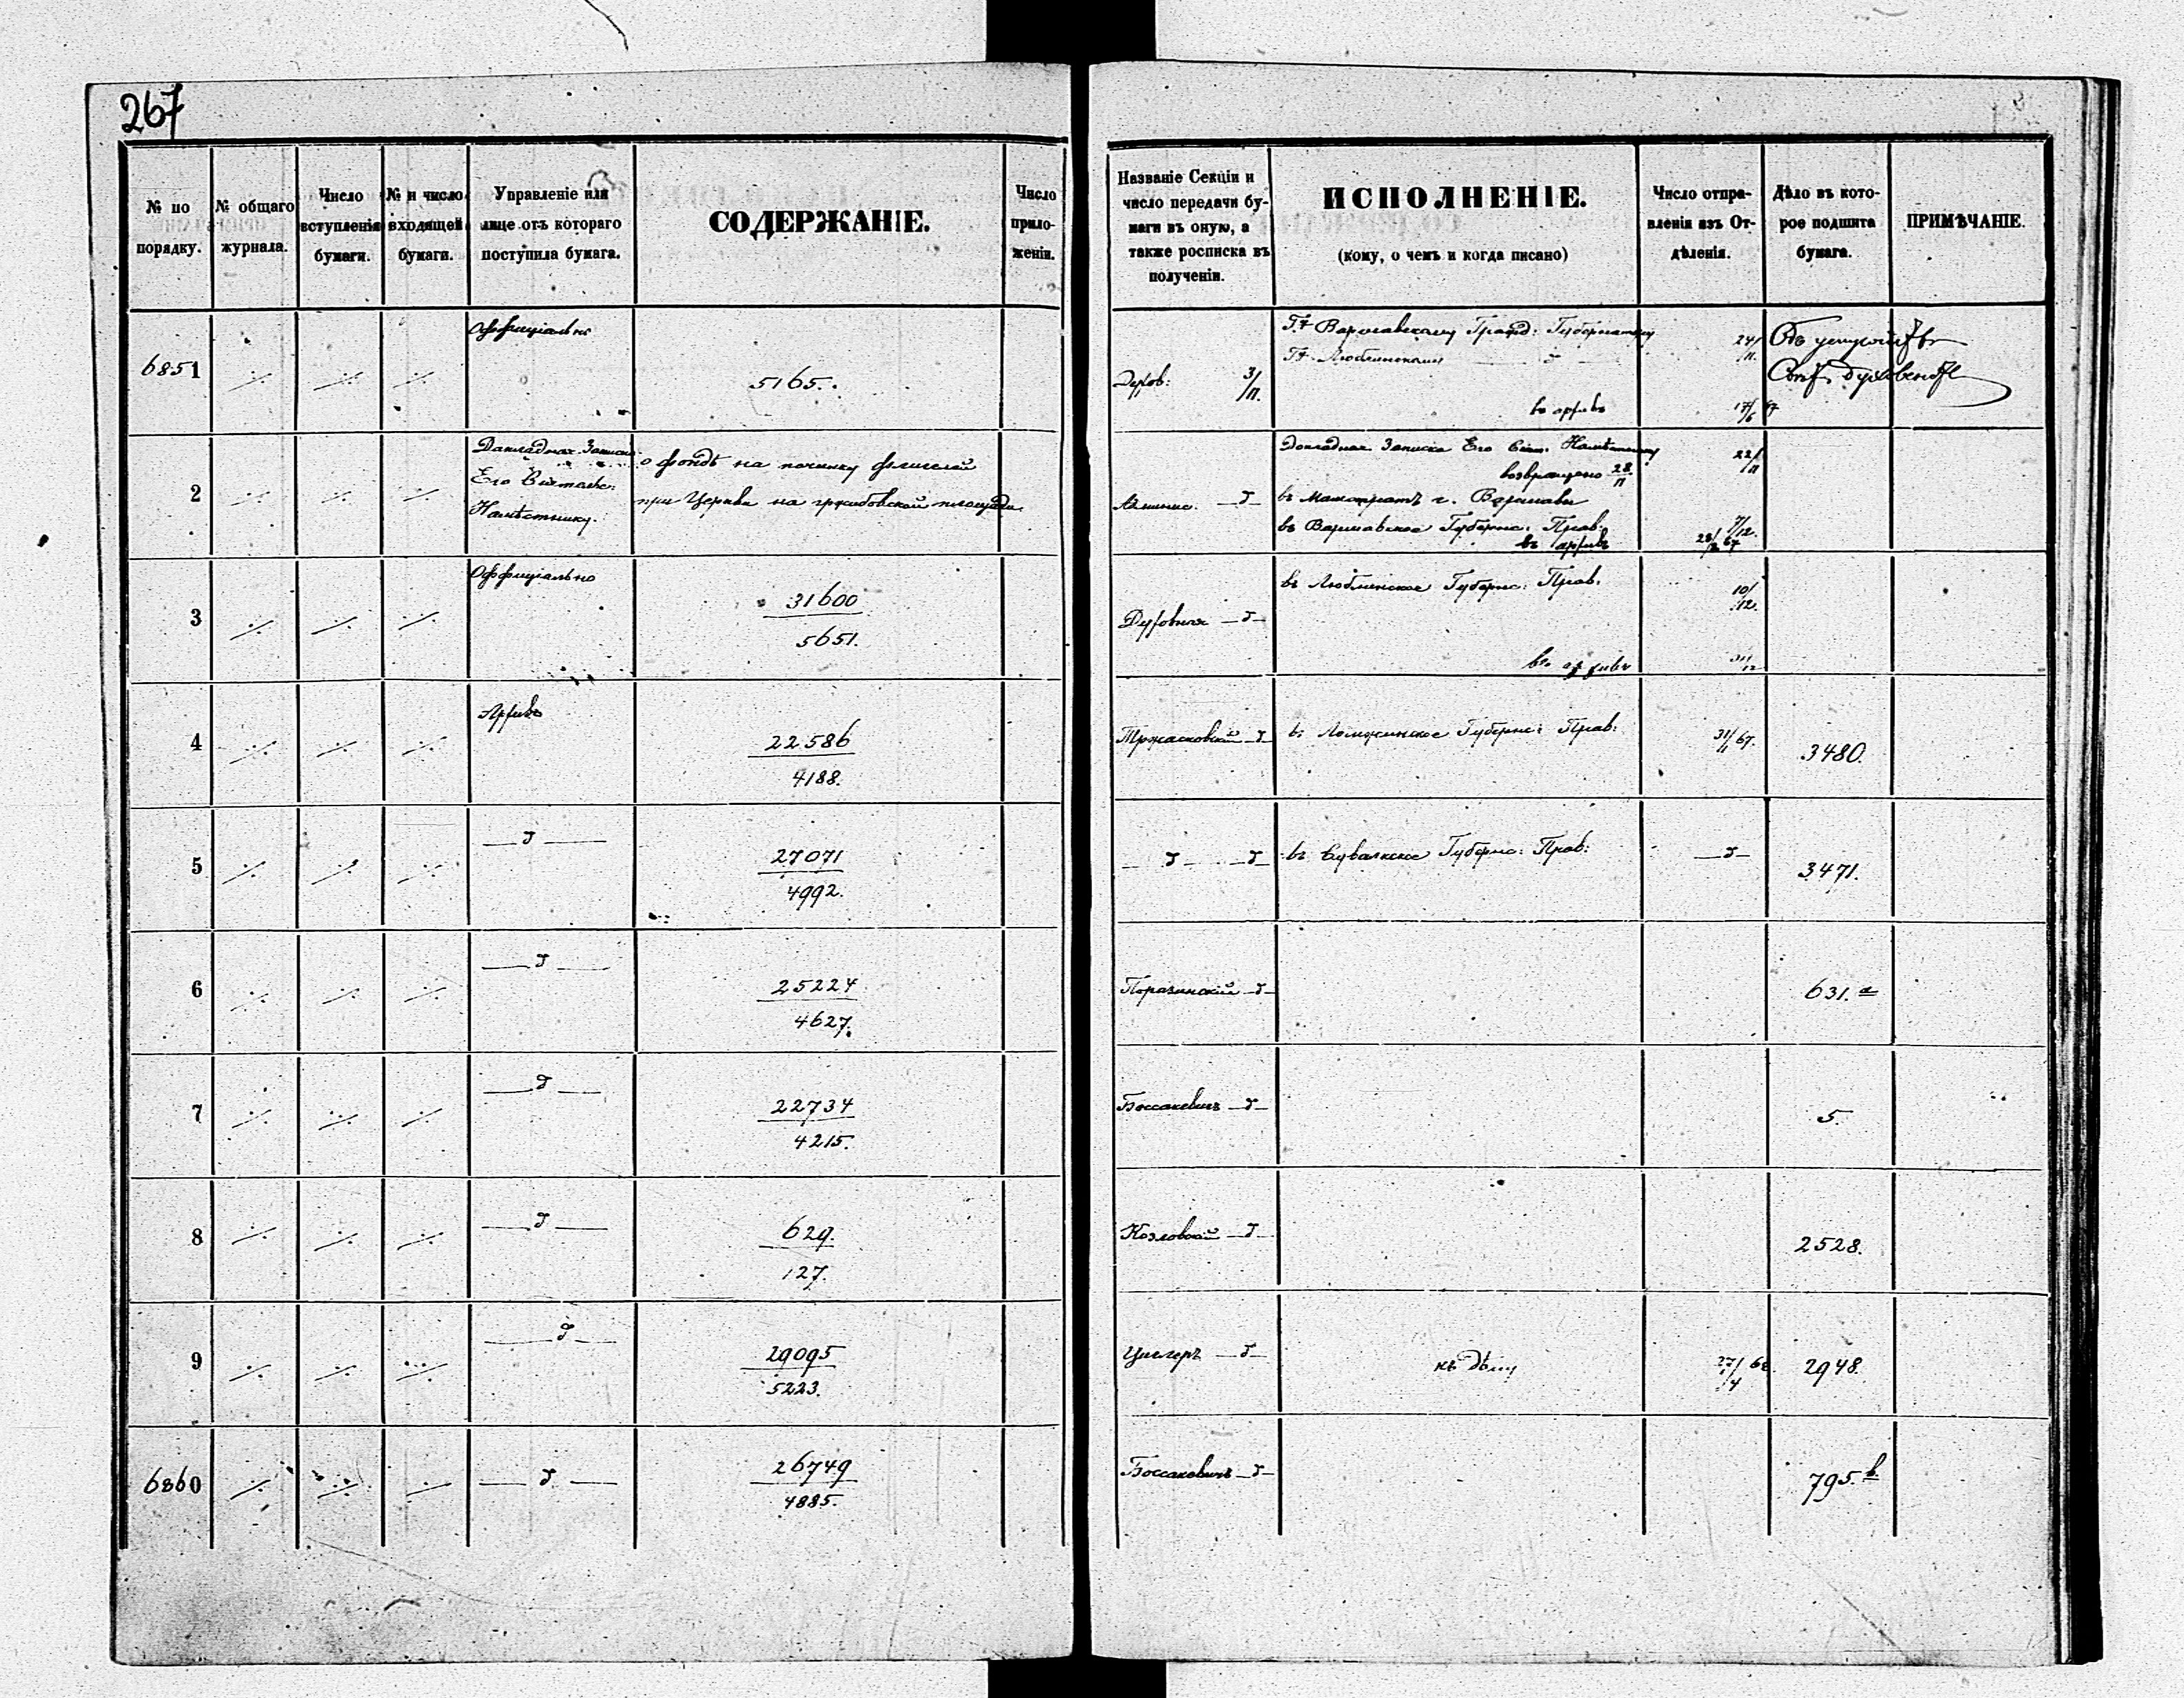 267
№ по порядку.
№ общаго журнала.
Число вступленія бумаги.
№ и число входящей бумаги.
Управленіе или лице отъ котораго поступила бумага.
СОДЕРЖАНІЕ.
Число приложеній.
Названіе Секціи и число передачи бумаги въ оную, а также росписка въ полученіи.
ИСПОЛНЕНІЕ.
(кому, о чемъ и когда писано)
Число отправленія изъ Отдѣленія.
Дѣло въ которое подшита бумага.
ПРИМѢЧАНІЕ.
6851
Оффиціально
5165.
3/11.
Варшавскому Гражд: Губернатору
Люблинскому
24/11.
въ архивъ
17/6 67
2
Докладная Записка
Его Сіятельс:
Намѣстнику.
о фондѣ на починку флигелей
при Церкви на гржибовской площади.
Докладная Записка Его Сіят. Намѣстнику
22/11
возвращено 28/11
въ Магистратъ г. Варшавы
въ Варшавское Губернс: Прав:
7/12.
въ архивъ
3
Оффиціально
31600
5651.
Духовная
въ Люблинское Губернс: Прав.
10/12.
въ архивъ
31/12
4
Архивъ
22586
4188.
въ Ломжинское Губернс: Прав:
31/1 67.
3480.
5
27071
4992.
въ Сувалкское Губернс: Прав:
3471.
6
25224
4627.
631. а
7
22734
4215.
Боссакевичъ
5.
8
629.
127.
Козловскій
2528.
9
29095
5223.
къ дѣлу
2948.
6860
26749
4885.
Боссакевичъ
795. в